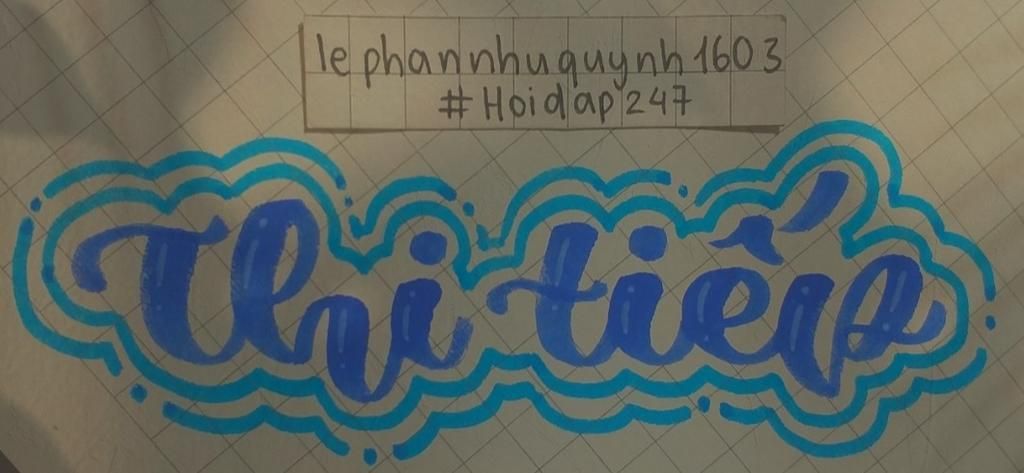 lephannhuquynh1603
#Hoidap247
Thi tiếp